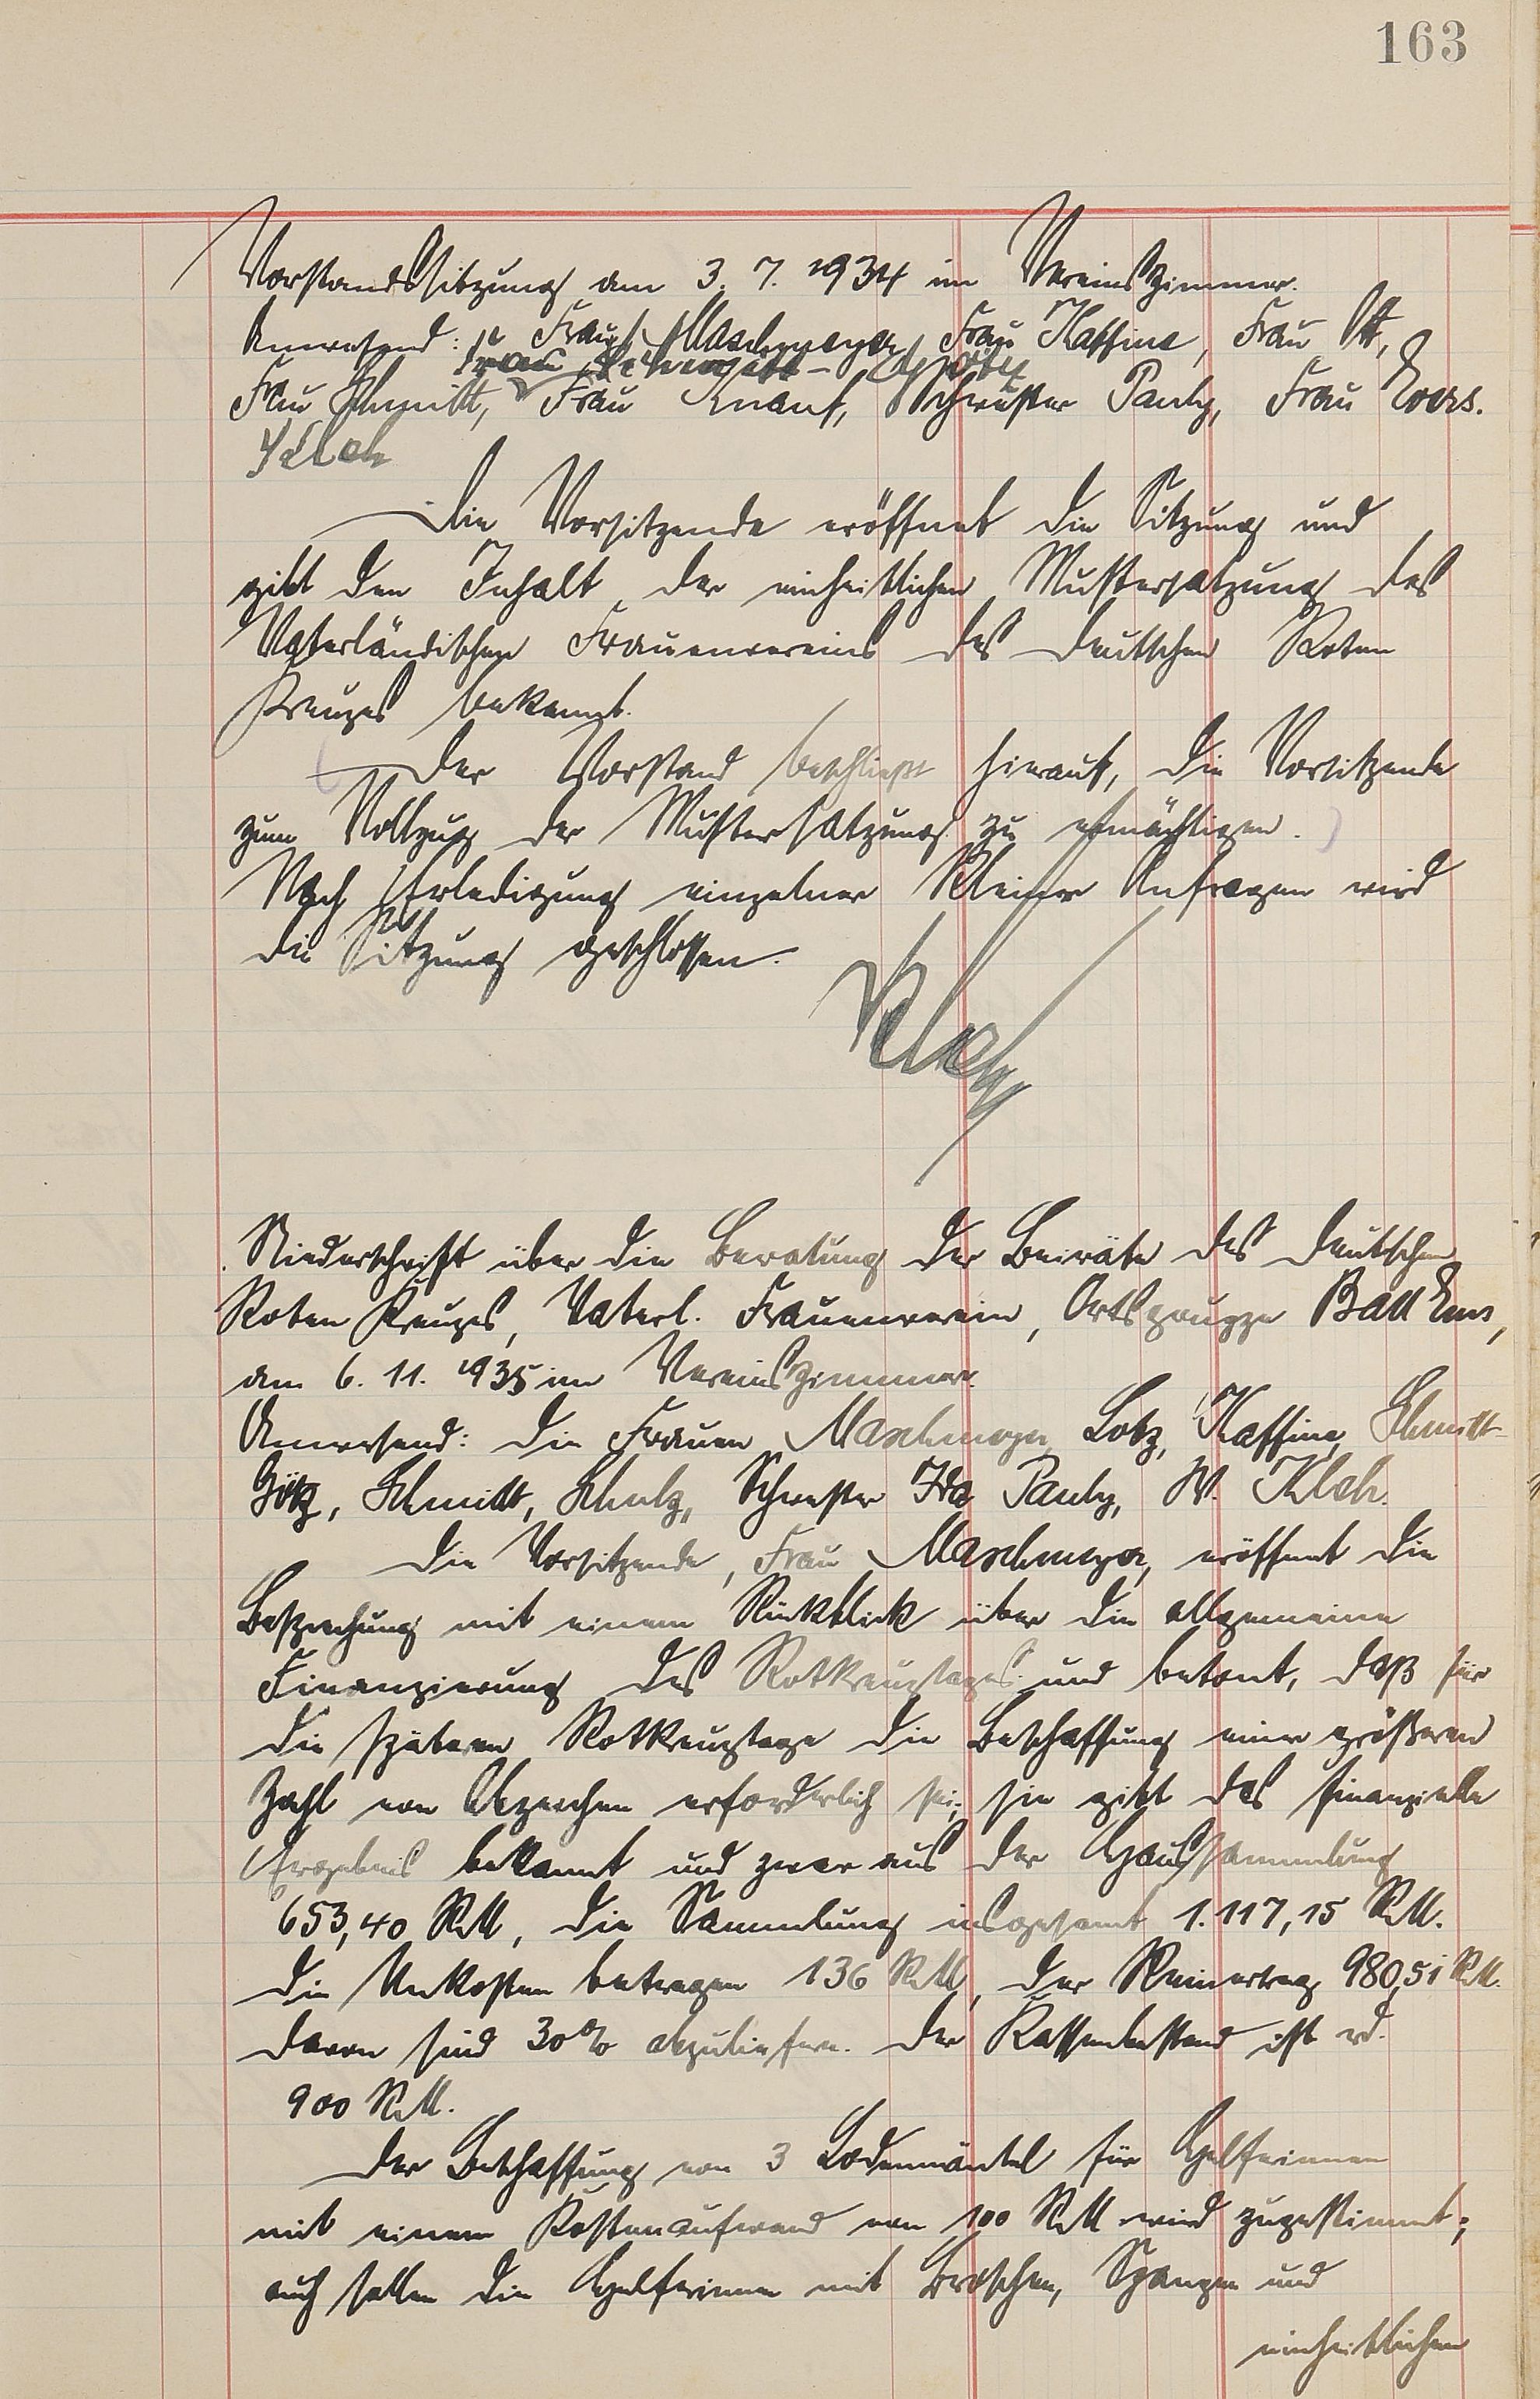 163
Vorstandssitzung am 3. 7. 1934 im Vereinszimmer.
Anwesend: Frau Maschmeyer, Frau Kaffine, Frau Ott,
Frau Schmitt-Götz
Frau Schmitt, Frau Knauf, Schwester Pauly, Frau Evers.
Kloh
Die Vorsitzende eröffnet die Sitzung und
gibt den Inhalt der einheitlichen Mustersatzung des
Vaterländischen Frauenvereins des Deutschen Roten
Kreuzes bekannt.
Der Vorstand beschließt hierauf, die Vorsitzende
zum Vollzug der Mustersatzung zu ermächtigen.
Nach Erledigung einzelner kleiner Anfragen wird
die Sitzung geschlossen.
Kloh
Niederschrift über die Beratung der Beiräte des Deutschen
Roten Kreuzes, Vaterl. Frauenverein, Ortsgruppe Bad Ems,
am 6. 11. 1935 im Vereinszimmer.
Anwesend: Die Frauen Maschmeyer, Lotz, Kaffine, Schmitt-
Götz, Schmitt, Schulz, Schwester Ida Pauly, W. Kloh.
Die Vorsitzende, Frau Maschmeyer, eröffnet die
Besprechung mit einem Rückblick über die allgemeine
Finanzierung des Rotkreuztages und betont, daß für
die späteren Rotkreuztage die Beschaffung einer größeren
Zahl von Abzeichen erforderlich sei; sie gibt das finanzielle
Ergebnis bekannt und zwar aus der Haussammlung
653,40 RM, die Sammlung insgesamt 1.117,15 RM.
Die Unkosten betragen 136 RM, der Reinertrag 980,51 RM.
Davon sind 30% abzuliefern. Der Kassenbestand ist rd.
900 RM.
Der Beschaffung von 3 Lodenmäntel für Helferinnen
mit einem Kostenaufwand von 100 RM wird zugestimmt;
auch sollen die Helferinnen mit Broschen, Spangen und
einheitlichen